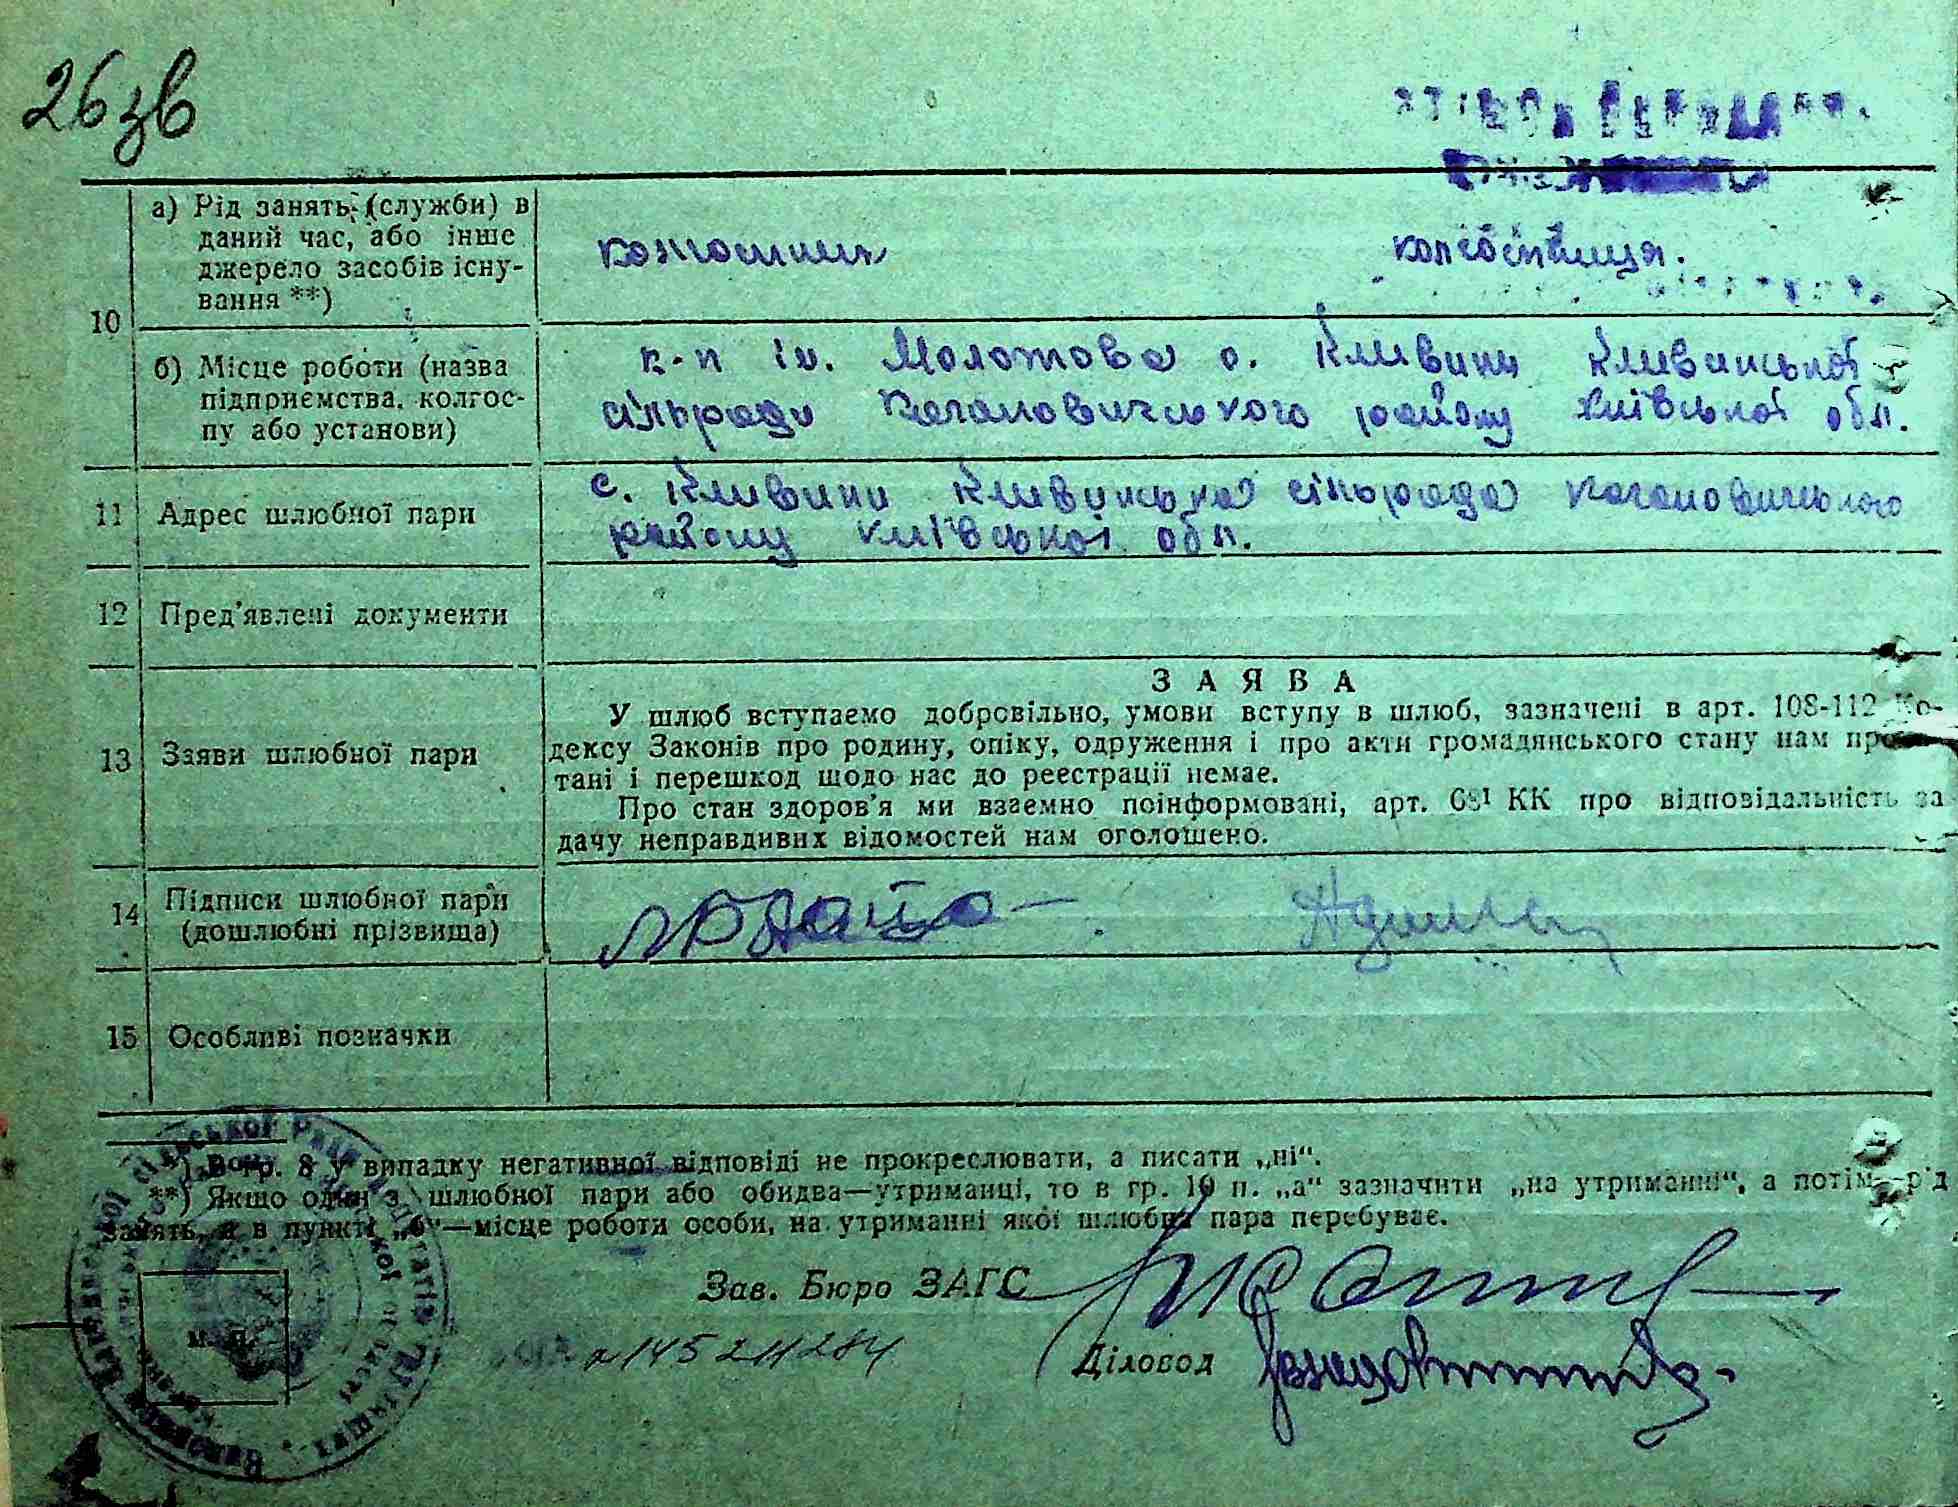 26 зв
10
а) Рід занять (служби) в
даний час, або інше
джерело засобів існу-
вання **)
колгоспниця.
б) Місце роботи (назва
підприємства, колгос-
пу або установи)
к-п ім. Молотова с. Кливини Кливинської
сільради Кагановичського району Київської обл.
11
Адрес шлюбної пари
с. Кливини Кливинська сільрада Кагановичського
району Київської обл.
12
Пред'явлені документи
13
Заяви шлюбної пари
ЗАЯВА
У шлюб вступаємо добровільно, умови вступу в шлюб, зазначені в арт. 108-112 Ко-
дексу Законів про родину, опіку, одруження і про акти громадянського стану нам
тані і перешкод щодо нас до реестрації немае.
Про стан здоров'я ми взаемно поінформовані, арт. 68¹ КК про відповідальність за
дачу неправдивих відомостей нам оголошено.
14
Підписи шлюбної пари
(дошлюбні прізвища)
15
Особливі позначки
*) В гр. 8 у випадку негативної відповіді не прокреслювати, а писати „ні“.
**) Якщо один з шлюбної пари або обидва—утриманці, то в гр. 10 п. „а“ зазначити „на утриманні“, а потім—рід
занять, а в пункті „б“—місце роботи особи, на утриманні якої шлюбна пара перебуває.
Зав. Бюро ЗАГС
м. п.
Діловод